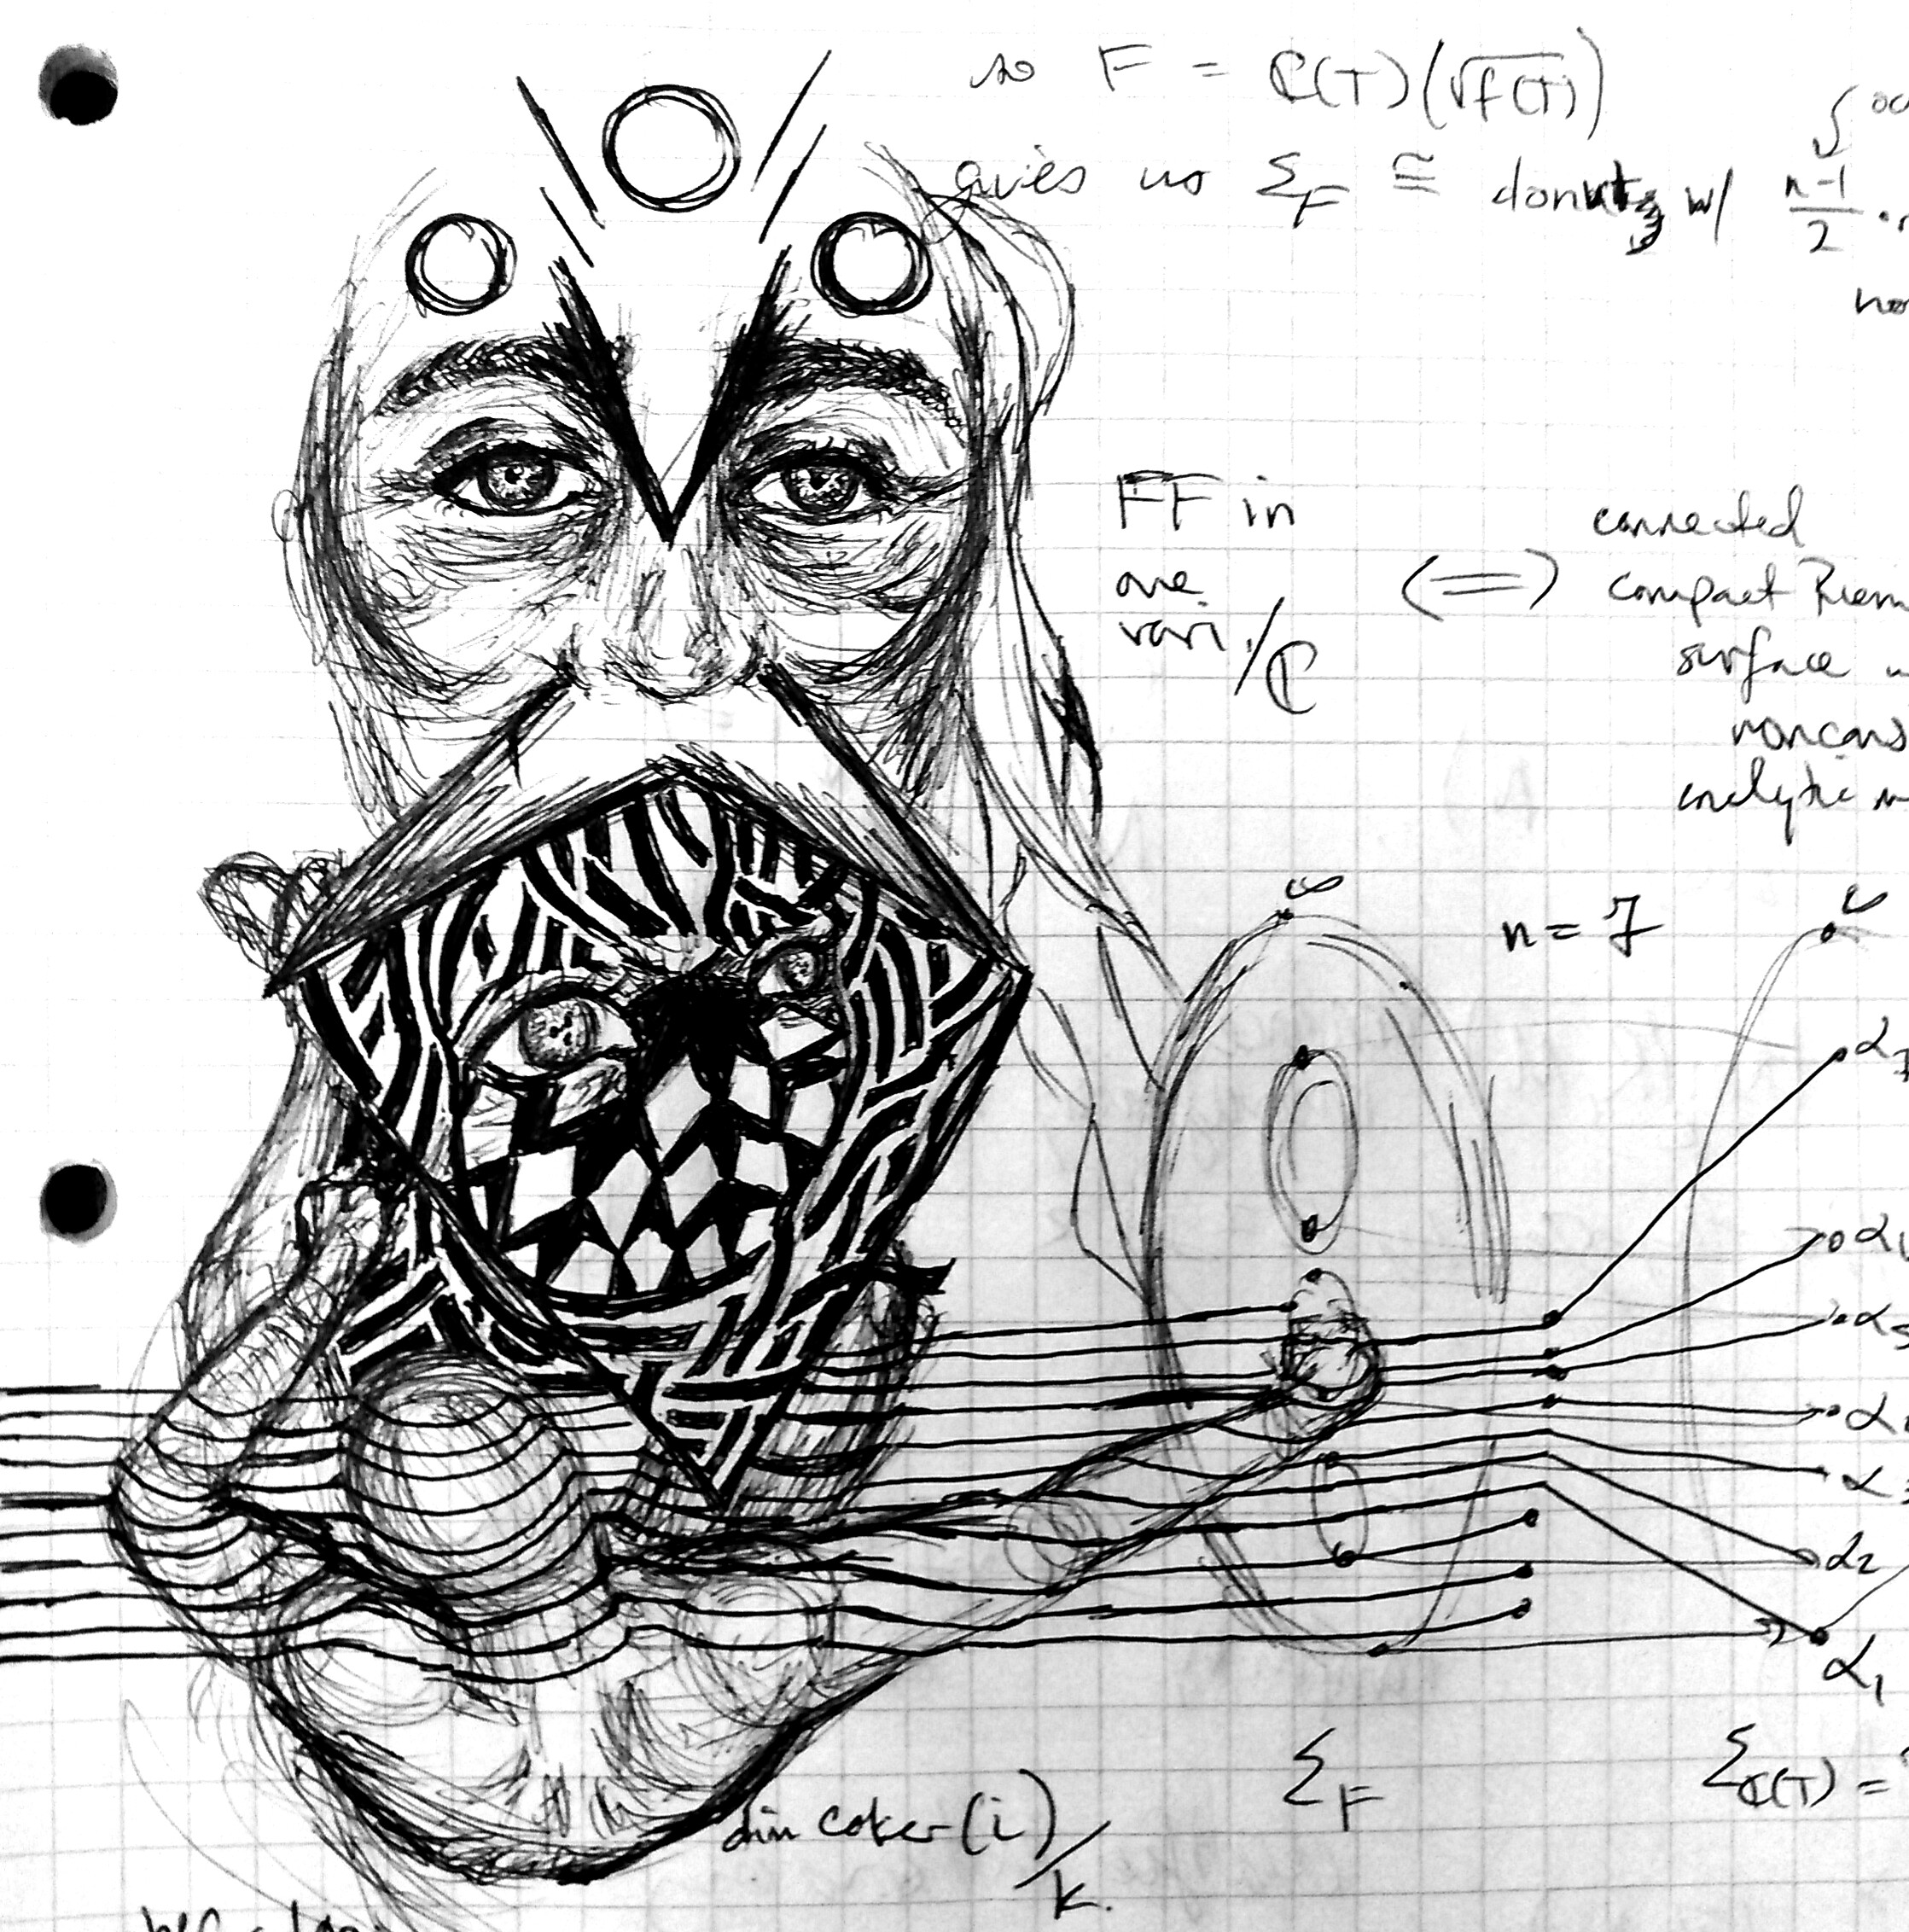 so F = ℂ(T)(√f(T))
gives us Σ_F ≅ donuts w/ (n-1)/2
∫ ∞
FF in
one
vari./ℂ
⟺
connected
compact Riem
surface
noncons
analytic
∞
n = 7
α_7
α_5
α_3
α_2
α_1
Σ_F
Σ_ℂ(T) =
dim coker(i)/k.